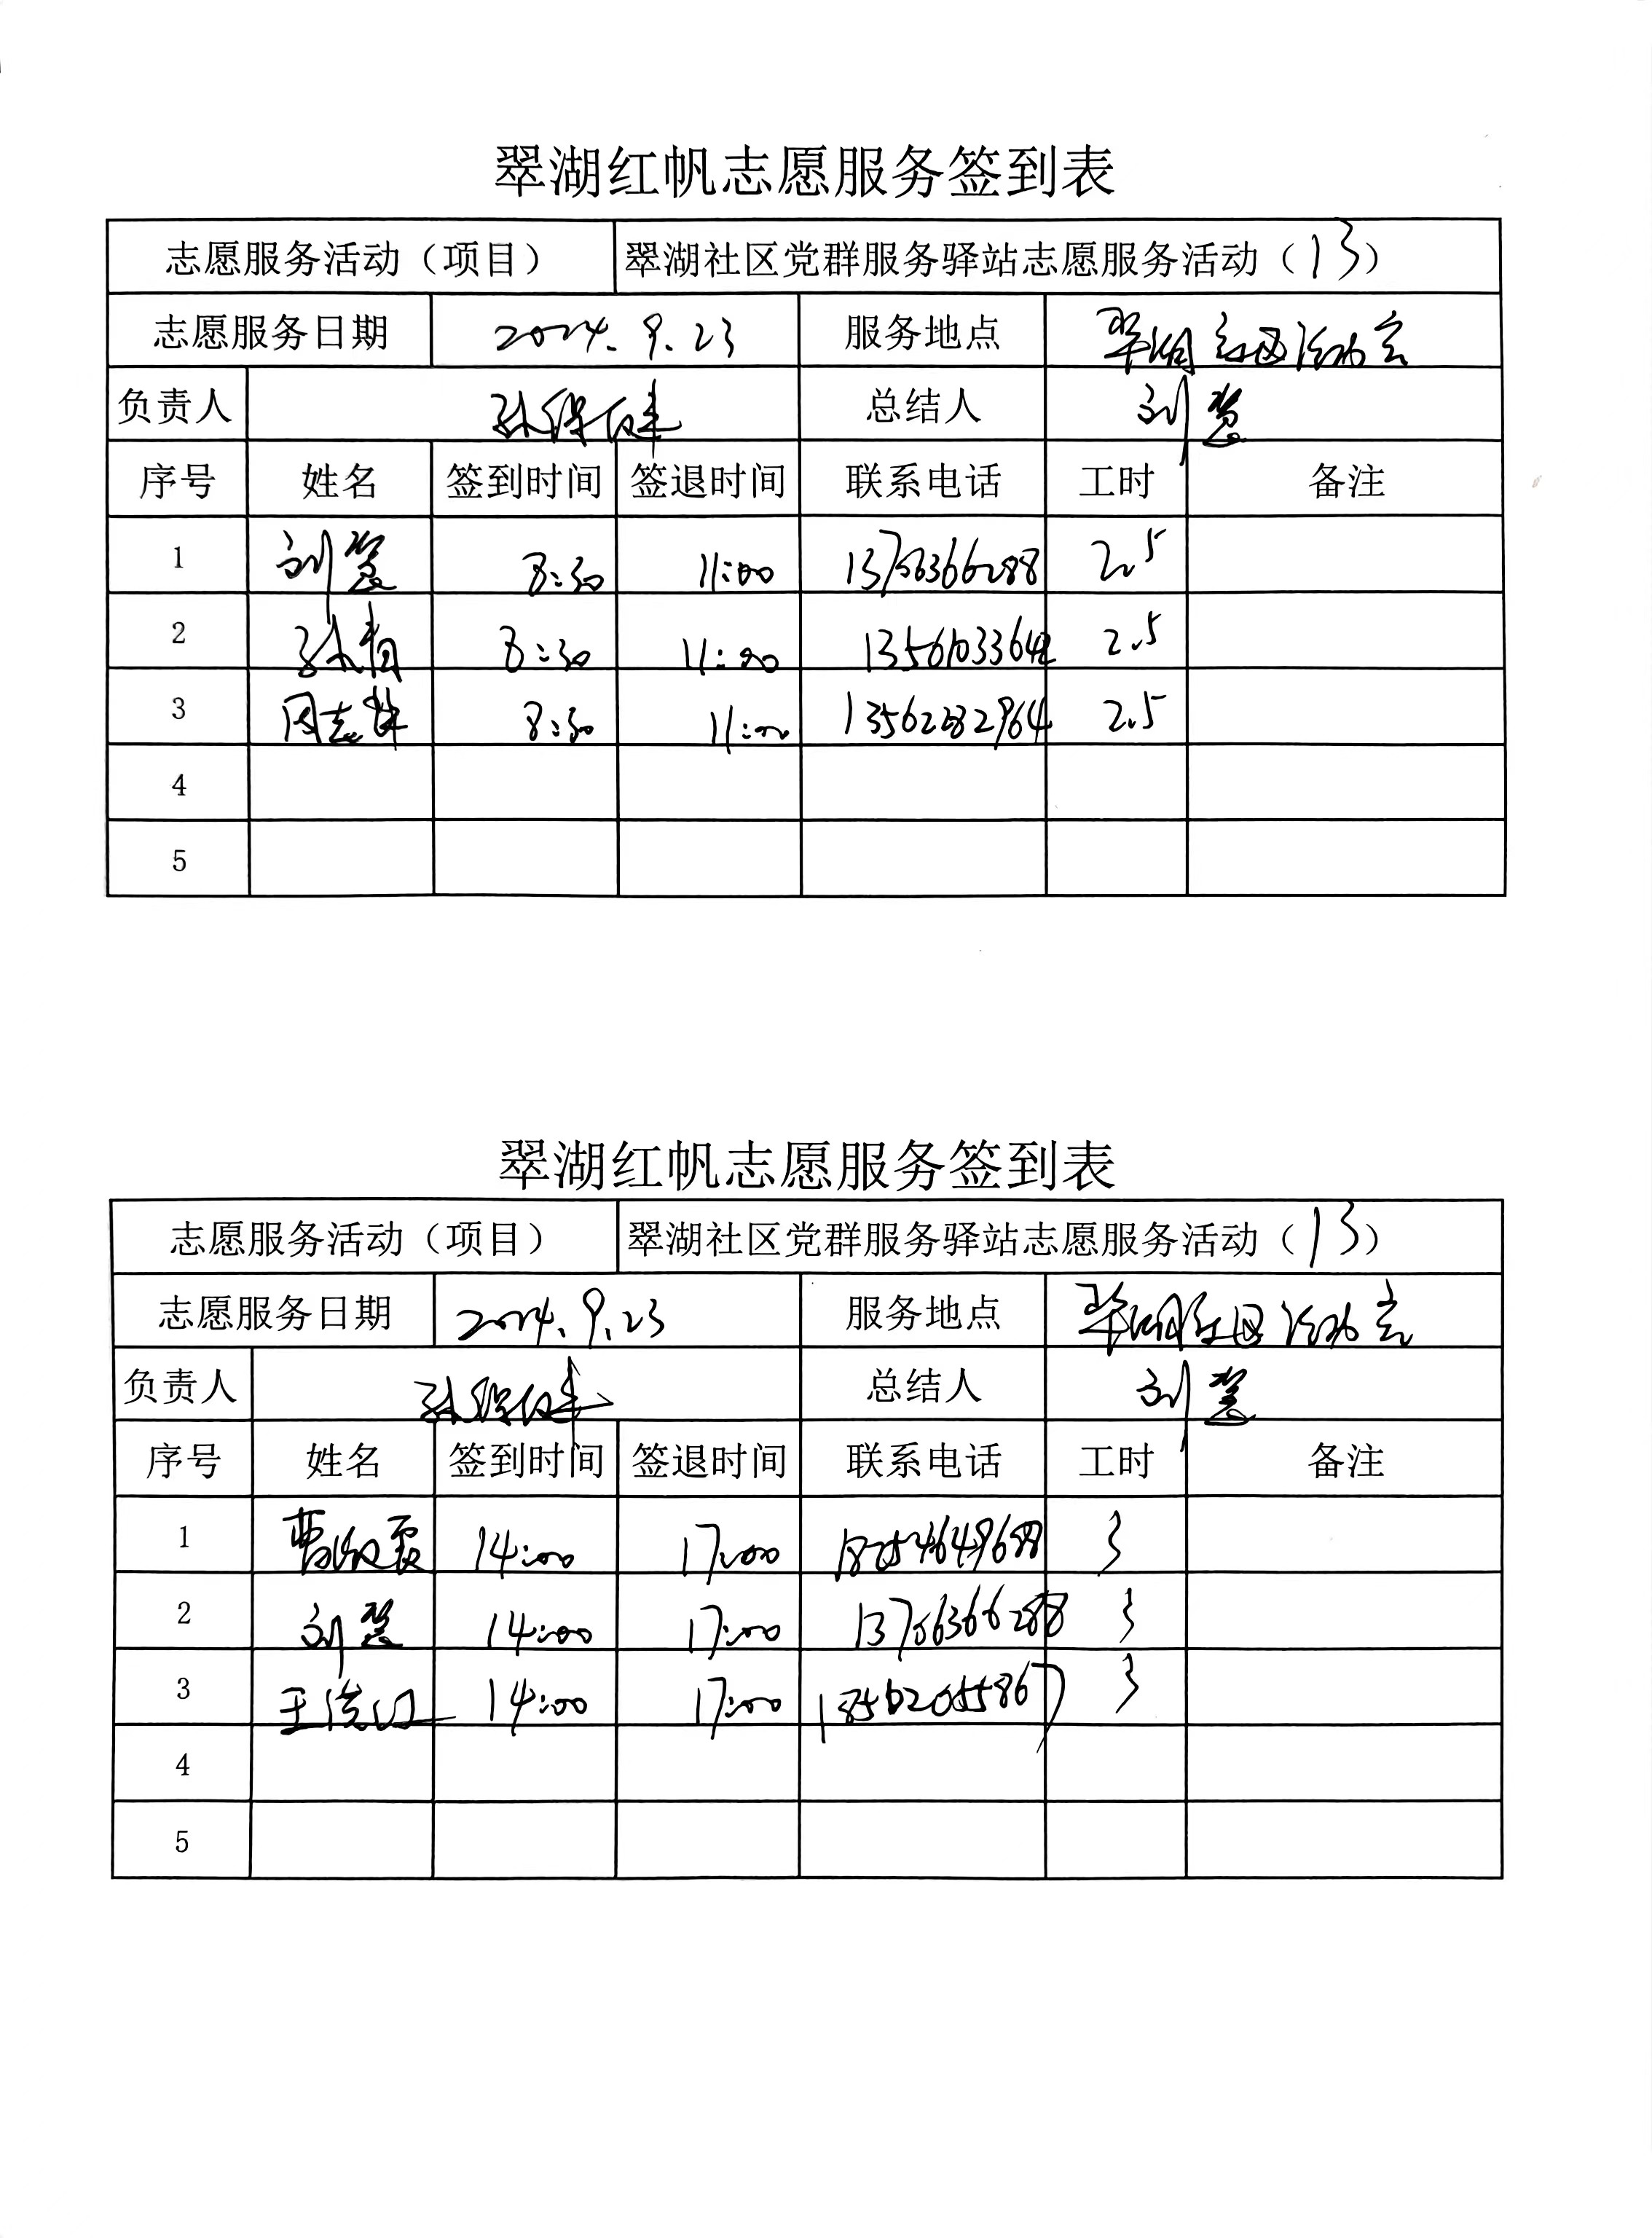 翠湖红帆志愿服务签到表
志愿服务活动（项目） 翠湖社区党群服务驿站志愿服务活动（13）
志愿服务日期 2024.9.23 服务地点 翠湖社区活动室
负责人 孙 总结人 刘慧
序号 姓名 签到时间 签退时间 联系电话 工时 备注
1 刘慧 8:30 11:00 13706366288 2.5
2 孙青 8:30 11:00 2.5
3 周志 8:30 11:00 13562282964 2.5
4
5
翠湖红帆志愿服务签到表
志愿服务活动（项目） 翠湖社区党群服务驿站志愿服务活动（13）
志愿服务日期 2024.9.23 服务地点 翠湖社区活动室
负责人 孙 总结人 刘慧
序号 姓名 签到时间 签退时间 联系电话 工时 备注
1 曹 14:00 17:00 3
2 刘慧 14:00 17:00 13706366288 3
3 王 14:00 17:00 3
4
5